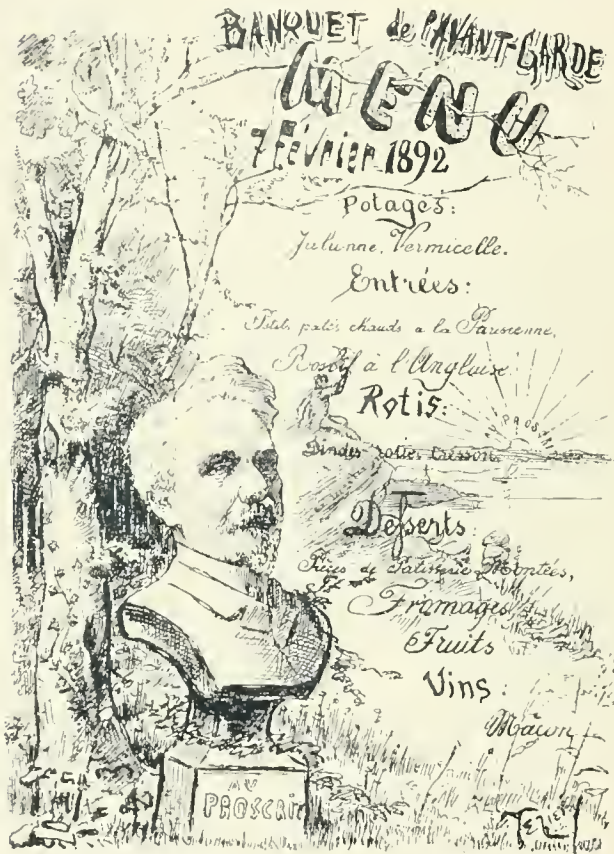 BANQUET de l'AVANT-GARDE
MENU
7 Février 1892
Potages:
Julienne, Vermicelle.
Entrées:
Petits patés chauds a la Parisienne,
Rosbif à l'Anglaise
Rotis:
Dindes rotie, cresson.
Desserts
Pièces de Patisserie Montées,
Fromages
Fruits
Vins:
Mâcon
AU
PROSCRIT